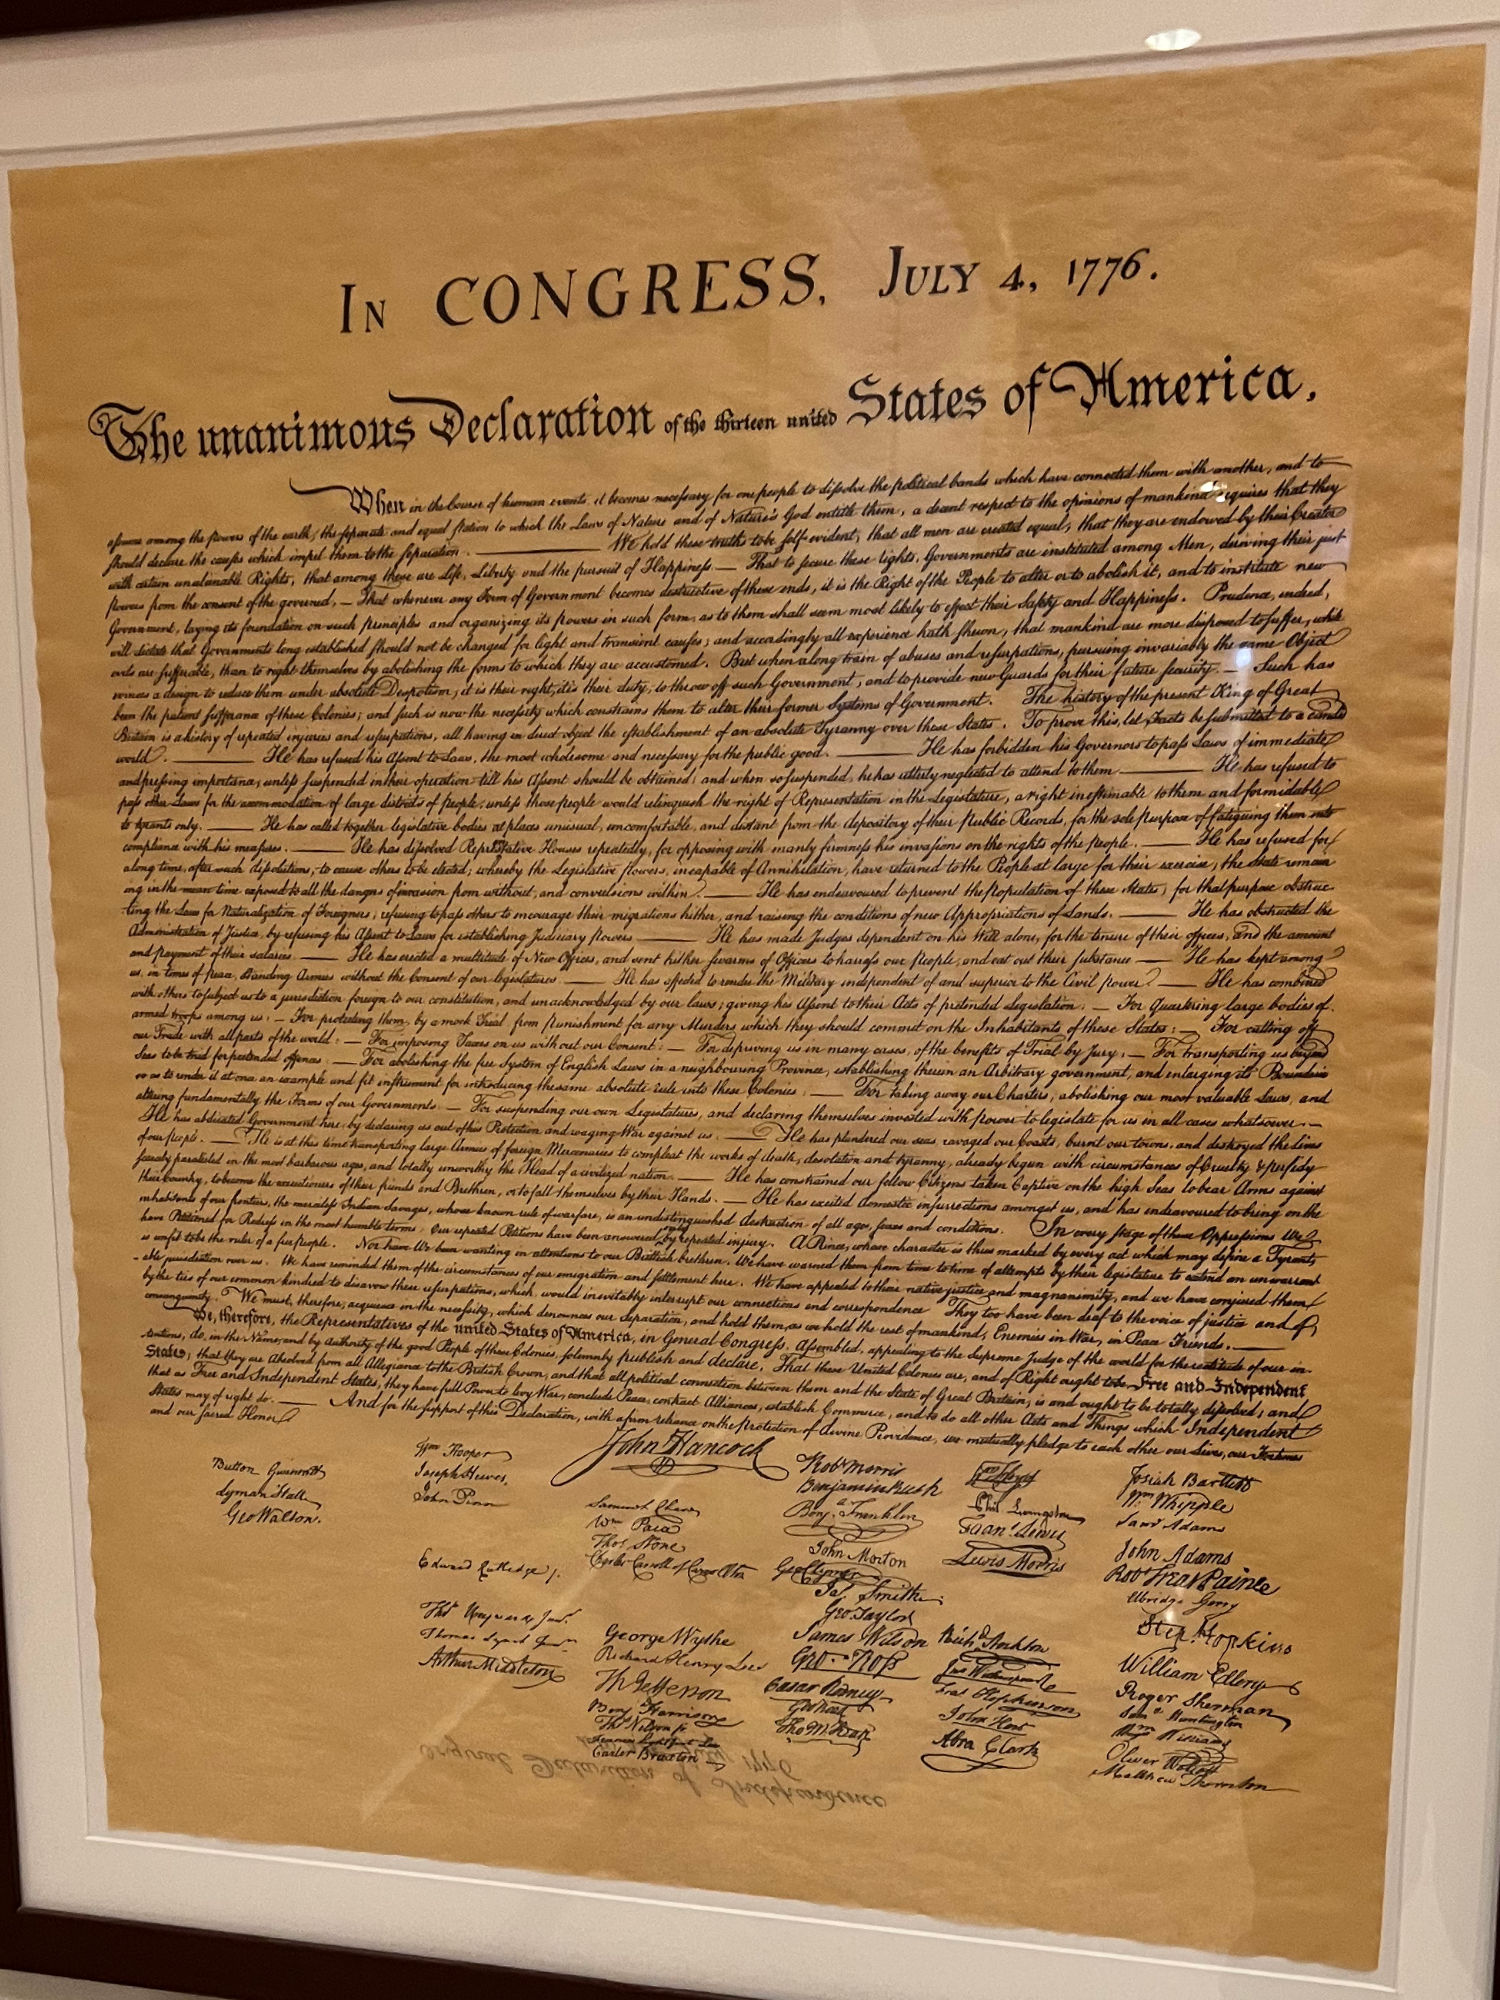 IN CONGRESS, JULY 4, 1776.
The unanimous Declaration of the thirteen united States of America,
When in the Course of human events, it becomes necessary for one people to dissolve the political bands which have connected them with another, and to
assume among the powers of the earth, the separate and equal station to which the Laws of Nature and of Nature's God entitle them, a decent respect to the opinions of mankind requires that they
should declare the causes which impel them to the separation. — We hold these truths to be self-evident, that all men are created equal, that they are endowed by their Creator
with certain unalienable Rights, that among these are Life, Liberty and the pursuit of Happiness — That to secure these rights, Governments are instituted among Men, deriving their just
powers from the consent of the governed, — That whenever any Form of Government becomes destructive of these ends, it is the Right of the People to alter or to abolish it, and to institute new
Government, laying its foundation on such principles and organizing its powers in such form, as to them shall seem most likely to effect their Safety and Happiness. Prudence, indeed,
will dictate that Governments long established should not be changed for light and transient causes; and accordingly all experience hath shewn, that mankind are more disposed to suffer, while
evils are sufferable, than to right themselves by abolishing the forms to which they are accustomed. But when a long train of abuses and usurpations, pursuing invariably the same Object
evinces a design to reduce them under absolute Despotism, it is their right, it is their duty, to throw off such Government, and to provide new Guards for their future security. — Such has
been the patient sufferance of these Colonies; and such is now the necessity which constrains them to alter their former Systems of Government. The history of the present King of Great
Britain is a history of repeated injuries and usurpations, all having in direct object the establishment of an absolute Tyranny over these States. To prove this, let Facts be submitted to a candid
world. — He has refused his Assent to Laws, the most wholesome and necessary for the public good. — He has forbidden his Governors to pass Laws of immediate
and pressing importance, unless suspended in their operation till his Assent should be obtained; and when so suspended, he has utterly neglected to attend to them — He has refused to
pass other Laws for the accommodation of large districts of people, unless those people would relinquish the right of Representation in the Legislature, a right inestimable to them and formidable
to tyrants only. — He has called together legislative bodies at places unusual, uncomfortable, and distant from the depository of their Public Records, for the sole purpose of fatiguing them into
compliance with his measures. — He has dissolved Representative Houses repeatedly, for opposing with manly firmness his invasions on the rights of the people. — He has refused for
a long time, after such dissolutions, to cause others to be elected; whereby the Legislative powers, incapable of Annihilation, have returned to the People at large for their exercise; the State remain-
ing in the mean time exposed to all the dangers of invasion from without, and convulsions within. — He has endeavoured to prevent the Population of these States; for that purpose obstruc-
ting the Laws for Naturalization of Foreigners; refusing to pass others to encourage their migrations hither, and raising the conditions of new Appropriations of Lands. — He has obstructed the
Administration of Justice, by refusing his Assent to Laws for establishing Judiciary powers — He has made Judges dependent on his Will alone, for the tenure of their offices, and the amount
and payment of their salaries. — He has erected a multitude of New Offices, and sent hither swarms of Officers to harass our People, and eat out their substance — He has kept among
us, in times of peace, Standing Armies without the Consent of our legislatures — He has affected to render the Military independent of and superior to the Civil power. — He has combined
with others to subject us to a jurisdiction foreign to our constitution, and unacknowledged by our laws; giving his Assent to their Acts of pretended Legislation. — For Quartering large bodies of
armed troops among us: — For protecting them, by a mock Trial from punishment for any Murders which they should commit on the Inhabitants of these States: — For cutting off
our Trade with all parts of the world: — For imposing Taxes on us without our Consent: — For depriving us in many cases, of the benefits of Trial by Jury: — For transporting us beyond
Seas to be tried for pretended offences — For abolishing the free System of English Laws in a neighbouring Province, establishing therein an Arbitrary government, and enlarging its Boundaries
so as to render it at once an example and fit instrument for introducing the same absolute rule into these Colonies: — For taking away our Charters, abolishing our most valuable Laws, and
altering fundamentally the Forms of our Governments — For suspending our own Legislatures, and declaring themselves invested with power to legislate for us in all cases whatsoever. —
He has abdicated Government here, by declaring us out of his Protection and waging War against us. — He has plundered our seas, ravaged our Coasts, burnt our towns, and destroyed the lives
of our people. — He is at this time transporting large Armies of foreign Mercenaries to compleat the works of death, desolation and tyranny, already begun with circumstances of Cruelty & perfidy
scarcely paralleled in the most barbarous ages, and totally unworthy the Head of a civilized nation. — He has constrained our fellow Citizens taken Captive on the high Seas to bear Arms against
their Country, to become the executioners of their friends and Brethren, or to fall themselves by their Hands. — He has excited domestic insurrections amongst us, and has endeavoured to bring on the
inhabitants of our frontiers, the merciless Indian Savages, whose known rule of warfare, is an undistinguished destruction of all ages, sexes and conditions. In every stage of these Oppressions We
have Petitioned for Redress in the most humble terms: Our repeated Petitions have been answered only by repeated injury. A Prince, whose character is thus marked by every act which may define a Tyrant,
is unfit to be the ruler of a free people. Nor have We been wanting in attentions to our Brittish brethren. We have warned them from time to time of attempts by their legislature to extend an unwarrant-
able jurisdiction over us. We have reminded them of the circumstances of our emigration and settlement here. We have appealed to their native justice and magnanimity, and we have conjured them
by the ties of our common kindred to disavow these usurpations, which, would inevitably interrupt our connections and correspondence They too have been deaf to the voice of justice and of
consanguinity. We must, therefore, acquiesce in the necessity, which denounces our Separation, and hold them, as we hold the rest of mankind, Enemies in War, in Peace Friends. —
We, therefore, the Representatives of the united States of America, in General Congress, Assembled, appealing to the Supreme Judge of the world for the rectitude of our in-
tentions, do, in the Name, and by Authority of the good People of these Colonies, solemnly publish and declare, That these United Colonies are, and of Right ought to be Free and Independent
States; that they are Absolved from all Allegiance to the British Crown, and that all political connection between them and the State of Great Britain, is and ought to be totally dissolved; and
that as Free and Independent States, they have full Power to levy War, conclude Peace, contract Alliances, establish Commerce, and to do all other Acts and Things which Independent
States may of right do. — And for the support of this Declaration, with a firm reliance on the Protection of divine Providence, we mutually pledge to each other our Lives, our Fortunes
and our sacred Honor
Button Gwinnett
Lyman Hall
Geo Walton.
Wm Hooper
Joseph Hewes,
John Penn
Edward Rutledge /.
Thos Heyward Junr.
Thomas Lynch Junr.
Arthur Middleton
John Hancock
Samuel Chase
Wm Paca
Thos Stone
Charles Carroll of Carrollton
George Wythe
Richard Henry Lee
Th Jefferson
Benj Harrison
Thos Nelson jr.
Francis Lightfoot Lee
Carter Braxton
Robt Morris
Benjamin Rush
Benja. Franklin
John Morton
Geo Clymer
Jas. Smith
Geo. Taylor
James Wilson
Geo. Ross
Caesar Rodney
Geo Read
Tho M:Kean
Wm Floyd
Phil. Livingston
Frans. Lewis
Lewis Morris
Richd. Stockton
Jno Witherspoon
Fras. Hopkinson
John Hart
Abra Clark
Josiah Bartlett
Wm Whipple
Saml Adams
John Adams
Robt Treat Paine
Elbridge Gerry
Step. Hopkins
William Ellery
Roger Sherman
Sam Huntington
Wm Williams
Oliver Wolcott
Matthew Thornton
Original Declaration of Independence
1776